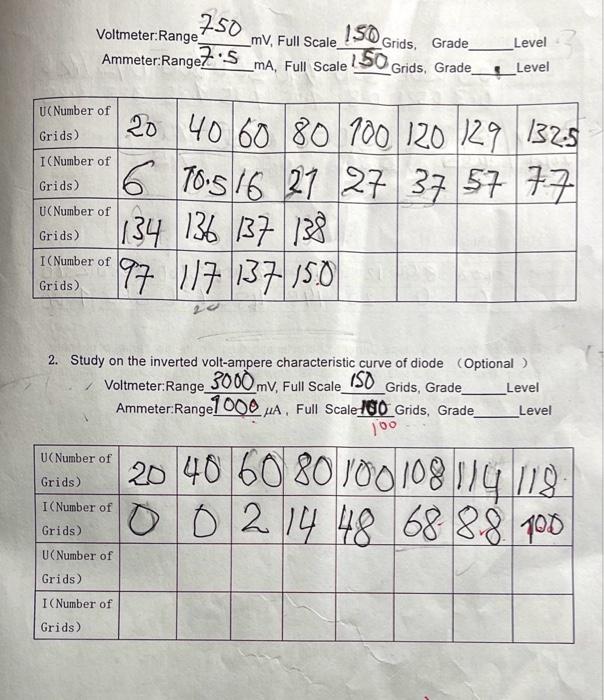 Voltmeter:Range 750 mV, Full Scale 150 Grids, Grade____Level
Ammeter:Range 7.5 mA, Full Scale 150 Grids, Grade____Level
U(Number of Grids) 20 40 60 80 100 120 129 132.5
I(Number of Grids) 6 10.5 16 21 27 37 57 77
U(Number of Grids) 134 136 137 138
I(Number of Grids) 97 117 137 150
2. Study on the inverted volt-ampere characteristic curve of diode (Optional)
Voltmeter:Range 3000 mV, Full Scale 150 Grids, Grade____Level
Ammeter:Range 1000 μA, Full Scale 100 Grids, Grade____Level
100
U(Number of Grids) 20 40 60 80 100 108 114 118
I(Number of Grids) 0 0 2 14 48 68 88 100
U(Number of Grids)
I(Number of Grids)